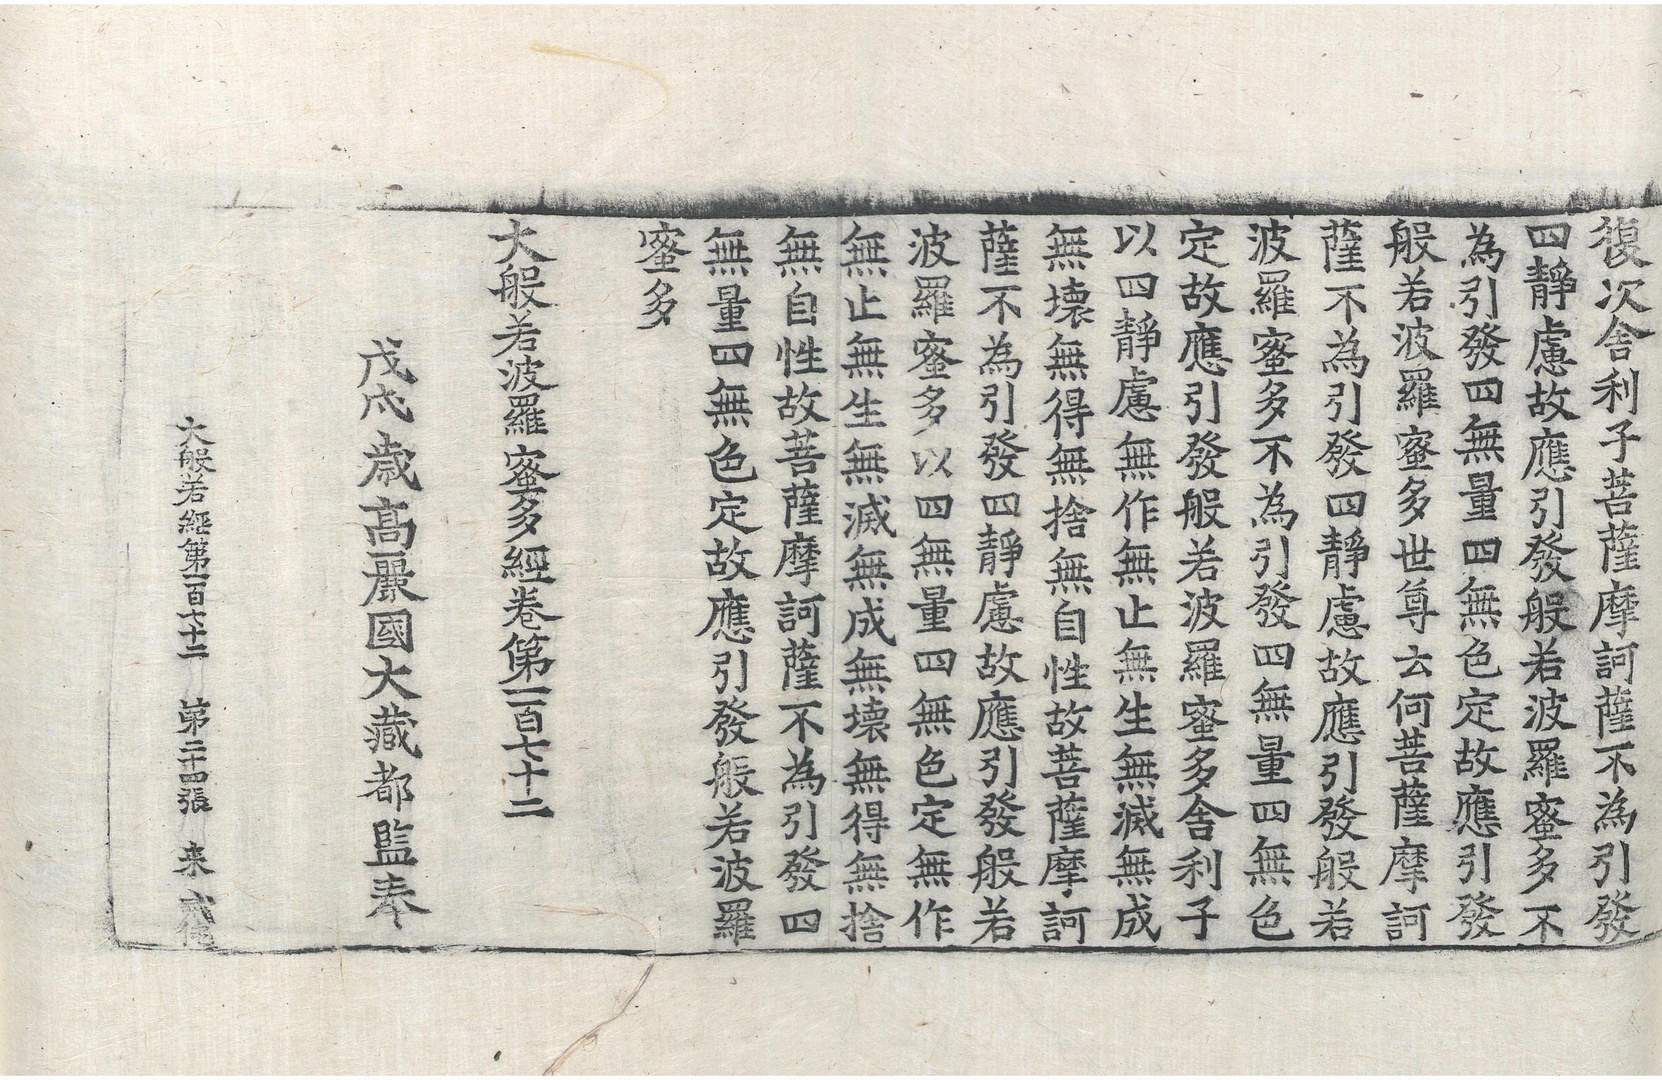 復次舍利子菩薩摩訶薩不為引發
四靜慮故應引發般若波羅蜜多不
為引發四無量四無色定故應引發
般若波羅蜜多世尊云何菩薩摩訶
薩不為引發四靜慮故應引發般若
波羅蜜多不為引發四無量四無色
定故應引發般若波羅蜜多舍利子
以四靜慮無作無止無生無滅無成
無壞無得無捨無自性故菩薩摩訶
薩不為引發四靜慮故應引發般若
波羅蜜多以四無量四無色定無作
無止無生無滅無成無壞無得無捨
無自性故菩薩摩訶薩不為引發四
無量四無色定故應引發般若波羅
蜜多
大般若波羅蜜多經卷第一百七十二
戊戌歲高麗國大藏都監奉
大般若經第一百七十二 第二十四張 来